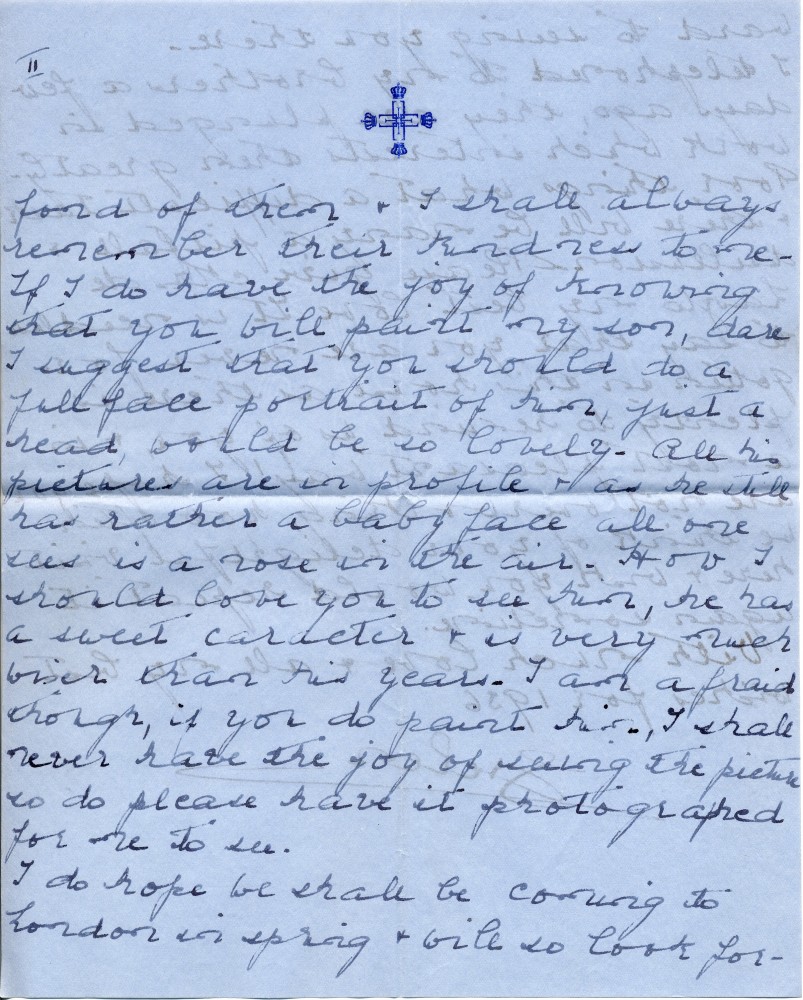 II
fond of them & I shall always
remember their kindness to me-
If I do have the joy of knowing
that you will paint my son, dare
I suggest that you should do a
full face portrait of him, just a
head, would be so lovely- All his
pictures are in profile & as he still
has rather a baby face all one
sees is a nose in the air- How I
should love you to see him, he has
a sweet caracter & is very much
wiser than his years- I am afraid
though, if you do paint him, I shall
never have the joy of seeing the picture
so do please have it photographed
for me to see.
I do hope we shall be coming to
London in spring & will so look for-